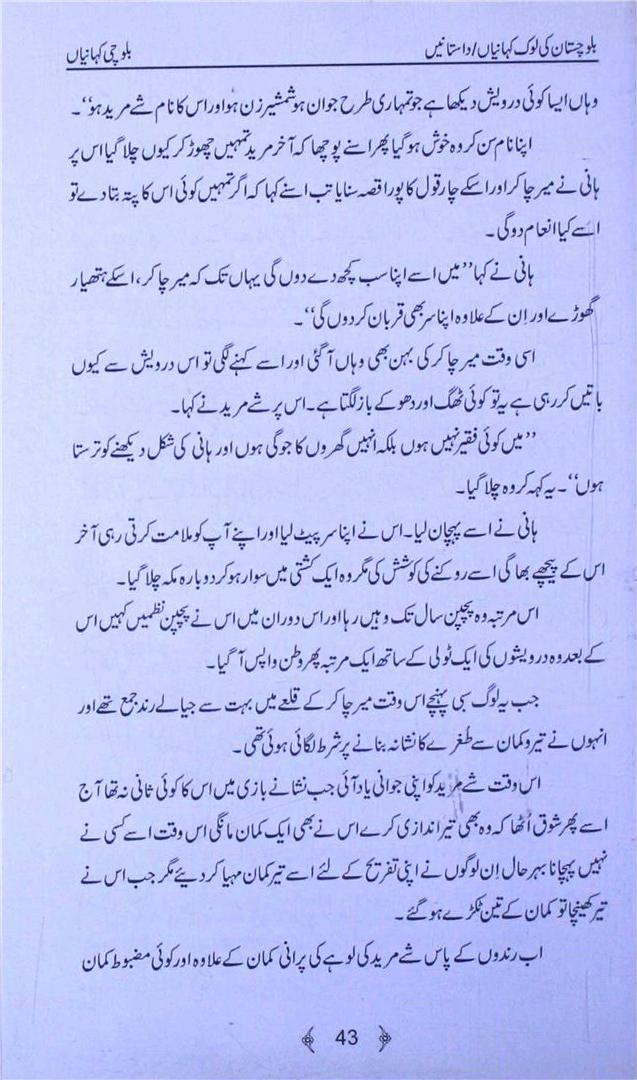 بلوچستان کی لوک کہانیاں/داستانیں
بلوچی کہانیاں
وہاں ایسا کوئی درویش دیکھا ہے جو تمہاری طرح جوان ہو شمشیر زن ہو اور اس کا نام شے مرید ہو‘‘۔
اپنا نام سن کر وہ خوش ہو گیا پھر اسنے پوچھا کہ آخر مرید تمہیں چھوڑ کر کیوں چلا گیا اس پر
ہانی نے میر چاکر اور اسکے چار قول کا پورا قصہ سنایا تب اسنے کہا کہ اگر تمہیں کوئی اس کا پتہ بتا دے تو
اسے کیا انعام دو گی۔
ہانی نے کہا’’میں اسے اپنا سب کچھ دے دوں گی یہاں تک کہ میر چاکر، اسکے ہتھیار
گھوڑے اور اِن کے علاوہ اپنا سر بھی قربان کر دوں گی‘‘۔
اسی وقت میر چاکر کی بہن بھی وہاں آ گئی اور اسے کہنے لگی تو اس درویش سے کیوں
باتیں کر رہی ہے یہ تو کوئی ٹھگ اور دھوکے باز لگتا ہے۔ اس پر شے مرید نے کہا۔
’’میں کوئی فقیر نہیں ہوں بلکہ انہیں گھروں کا جوگی ہوں اور ہانی کی شکل دیکھنے کو ترستا
ہوں‘‘۔ یہ کہہ کر وہ چلا گیا۔
ہانی نے اسے پہچان لیا۔ اس نے اپنا سر پیٹ لیا اور اپنے آپ کو ملامت کرتی رہی آخر
اس کے پیچھے بھاگی اسے روکنے کی کوشش کی مگر وہ ایک کشتی میں سوار ہو کر دوبارہ مکہ چلا گیا۔
اس مرتبہ وہ پچپن سال تک وہیں رہا اور اس دوران میں اس نے پچپن نظمیں کہیں اس
کے بعد وہ درویشوں کی ایک ٹولی کے ساتھ ایک مرتبہ پھر وطن واپس آ گیا۔
جب یہ لوگ سبی پہنچے اس وقت میر چاکر کے قلعے میں بہت سے جیالے رند جمع تھے اور
انہوں نے تیر و کمان سے طُغرے کا نشانہ بنانے پر شرط لگائی ہوئی تھی۔
اس وقت شے مرید کو اپنی جوانی یاد آئی جب نشانے بازی میں اس کا کوئی ثانی نہ تھا آج
اسے پھر شوق اُٹھا کہ وہ بھی تیر اندازی کرے اس نے بھی ایک کمان مانگی اس وقت اسے کسی نے
نہیں پہچانا بہر حال اِن لوگوں نے اپنی تفریح کے لئے اسے تیر کمان مہیا کر دیئے مگر جب اس نے
تیر کھینچا تو کمان کے تین ٹکڑے ہو گئے۔
اب رندوں کے پاس شے مرید کی لوہے کی پرانی کمان کے علاوہ اور کوئی مضبوط کمان
43